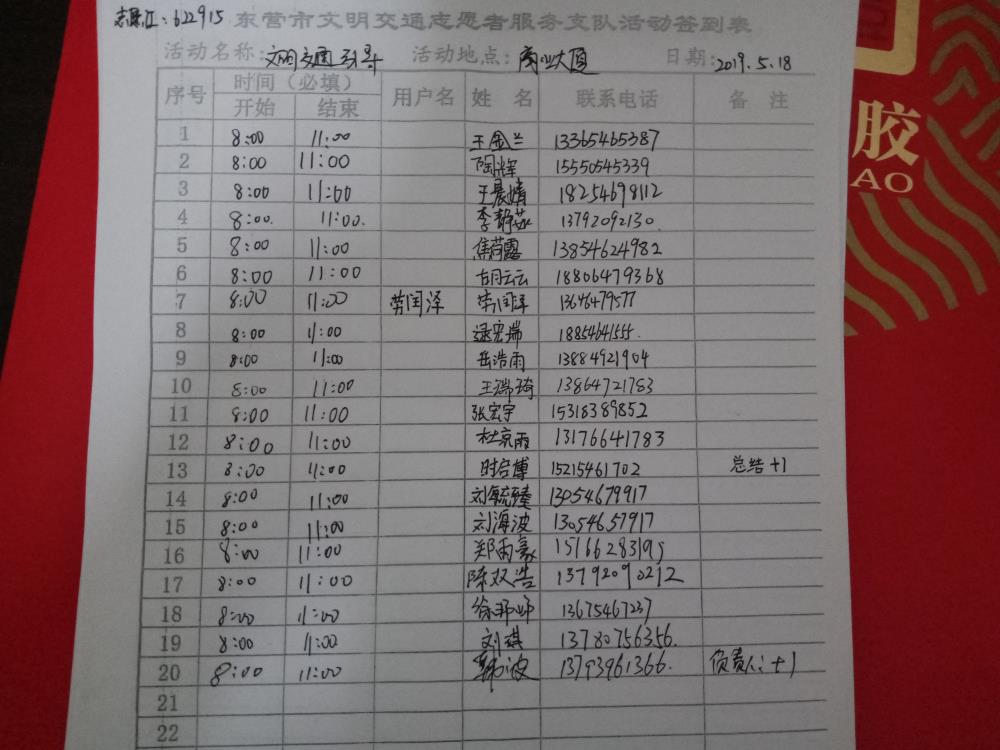 622915 东营市文明交通志愿者服务支队活动签到表
活动名称: 文明交通 活动地点: 商业大厦 日期: 2019.5.18
序号 时间（必填） 用户名 姓名 联系电话 备注
开始 结束
1 8:00 11:00 王金兰 13365465387
2 8:00 11:00 陶辉 15550545339
3 8:00 11:00 王晨婧 18254698112
4 8:00. 11:00. 李静 13792092130.
5 8:00 11:00 焦荷露 13854624982
6 8:00 11:00 胡云云 18806479368
7 8:00 11:00 劳闰泽 劳闰泽 13646479577
8 8:00 11:00 逯宏瑞 18854641555.
9 8:00 11:00 岳浩雨 13884921904
10 8:00 11:00 王瑞琦 13864721783
11 8:00 11:00 张宏宇 15318389852
12 8:00 11:00 杜京雨 13176641783
13 8:00 11:00 时启博 15215461702 总结+1
14 8:00 11:00 刘毓臻 13054679917
15 8:00 11:00 刘海波 13054657917
16 8:00 11:00 郑雨豪 15166283195
17 8:00 11:00 陈双浩 13792090212
18 8:00 11:00 徐邦师 13675467237
19 8:00 11:00 刘琪 13780756356.
20 8:00 11:00 韩波 13793961366. 负责人:+1
21
22
胶
AO